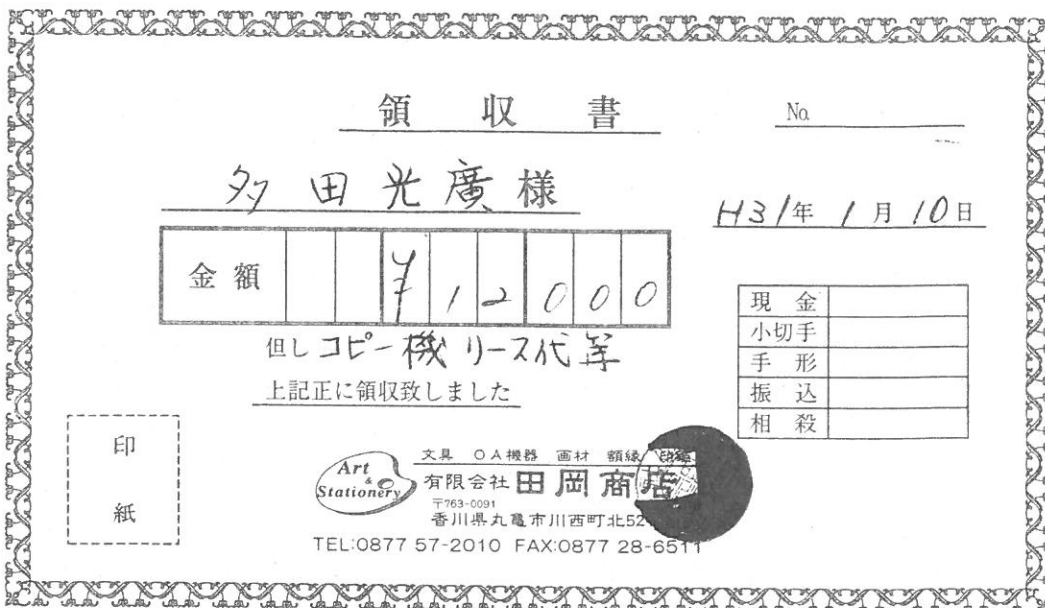 領収書
No.
多田光廣様
H31年1月10日
金額 ¥12000
但し コピー機リース代等
上記正に領収致しました
現金
小切手
手形
振込
相殺
印紙
Art & Stationery
文具 OA機器 画材 額縁
有限会社 田岡商店
〒763-0091
香川県丸亀市川西町北52
TEL:0877 57-2010 FAX:0877 28-6511